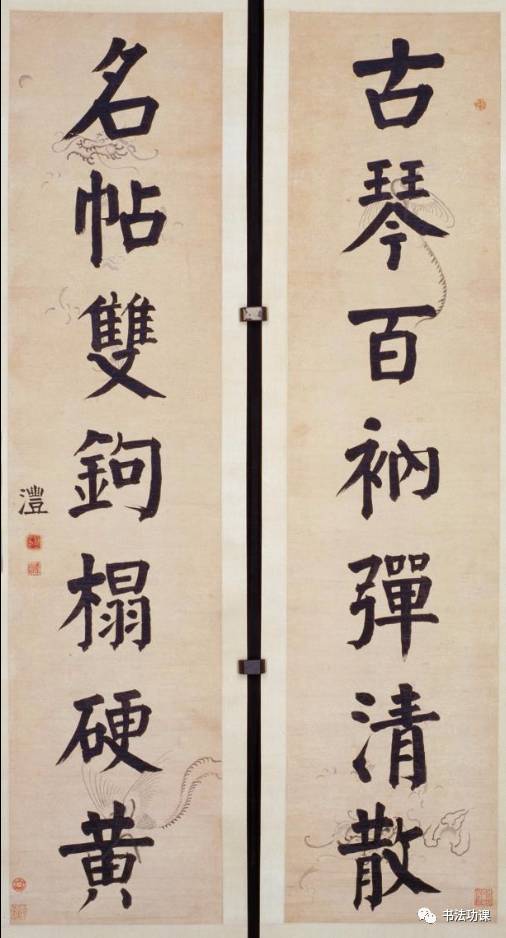 古琴百衲彈清散
名帖雙鉤榻硬黃
灃
书法功课